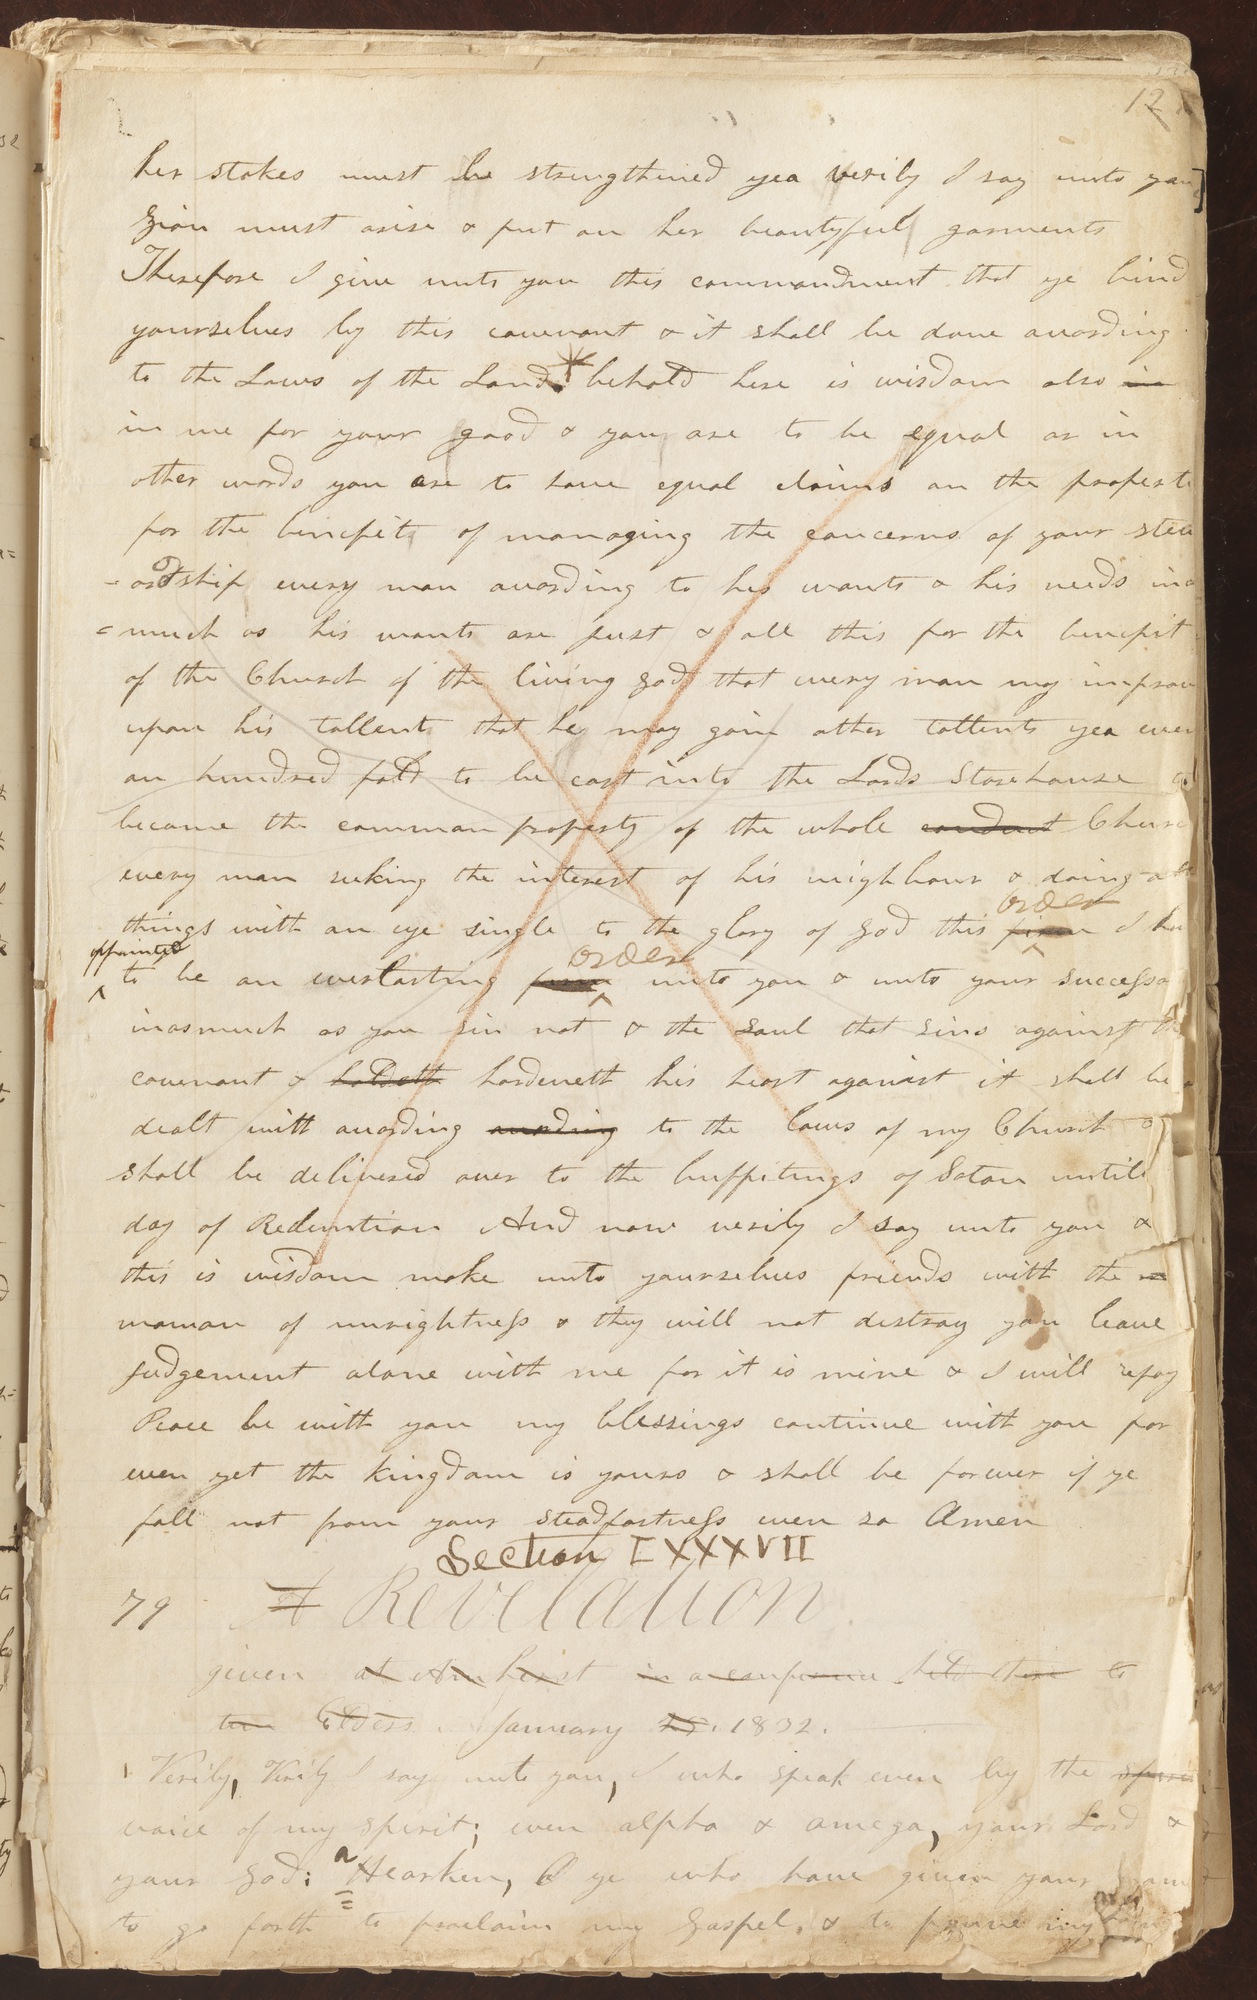 12
her stakes must be strengthened yea verily I say unto you]
Zion must arise & put on her beautyful garments
Therefore I give unto you this commandment that ye bind
yourselves by this covenant & it shall be done according
to the Laws of the Land behold here is wisdom also in
in me for your good & you are to be equal or in
other words you are to have equal claims on the
for the benefit of managing the concerns of your stew
-ardship every man according to his wants & his needs ina
=much as his wants are just & all this for the benefit
of the Church of the living God that every man my improv
upon his tallent that he may gain other tallents yea even
an hundred fold to be cast into the Lords Storehouse
become the common property of the whole conduct Churc
every man seeking the interest of his neighbour & doing all
order
things with an eye single to the glory of God this I ha
appointed order
to be an everlasting unto you & unto your successo
inasmuch as you sin not & the Soul that sins against
covenant & hardeneth his heart against it shall be
dealt with according according to the laws of my Church &
shall be delivered over to the buffitings of Satan until
day of Redemtion And now verily I say unto you &
this is wisdom make unto yourselves friends with the
mamon of unrightness & they will not distroy you leave
judgement alone with me for it is mine & I will repay
Peace be with you my blessings continue with you for
even yet the kingdom is yours & shall be forever if ye
fall not from your steadfastness even so Amen
Section LXXXVII
79 A Revelation
given at Amherst in a conference held there to
the Elders January 25. 1832.
1 Verily, Verily I say unto you, I who speak even by the
voice of my spirit; even alpha & omega, your Lord &
your God: Hearken, O ye who have given your nam
to go forth to proclaim my Gospel, & to prune my